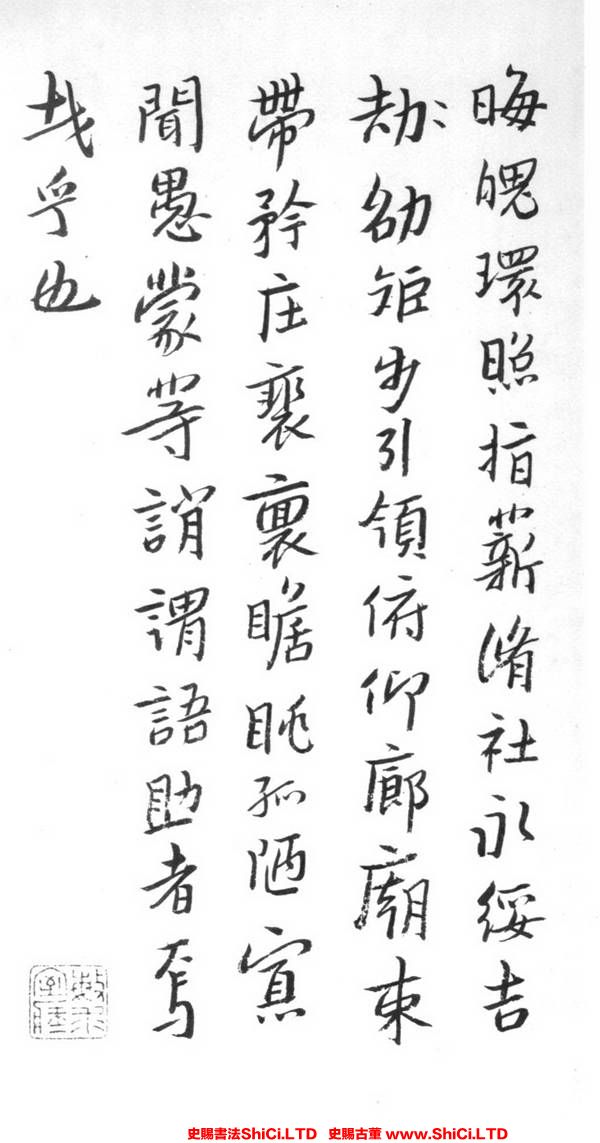 晦魄環照指薪脩社永綏吉
劫劭矩步引領俯仰廊廟束
帶矜庄裵瞻眺孤陋寡
聞愚蒙等誚謂語助者焉
哉乎也
史賜書法ShiCi.LTD 史賜古董 www.ShiCi.LTD